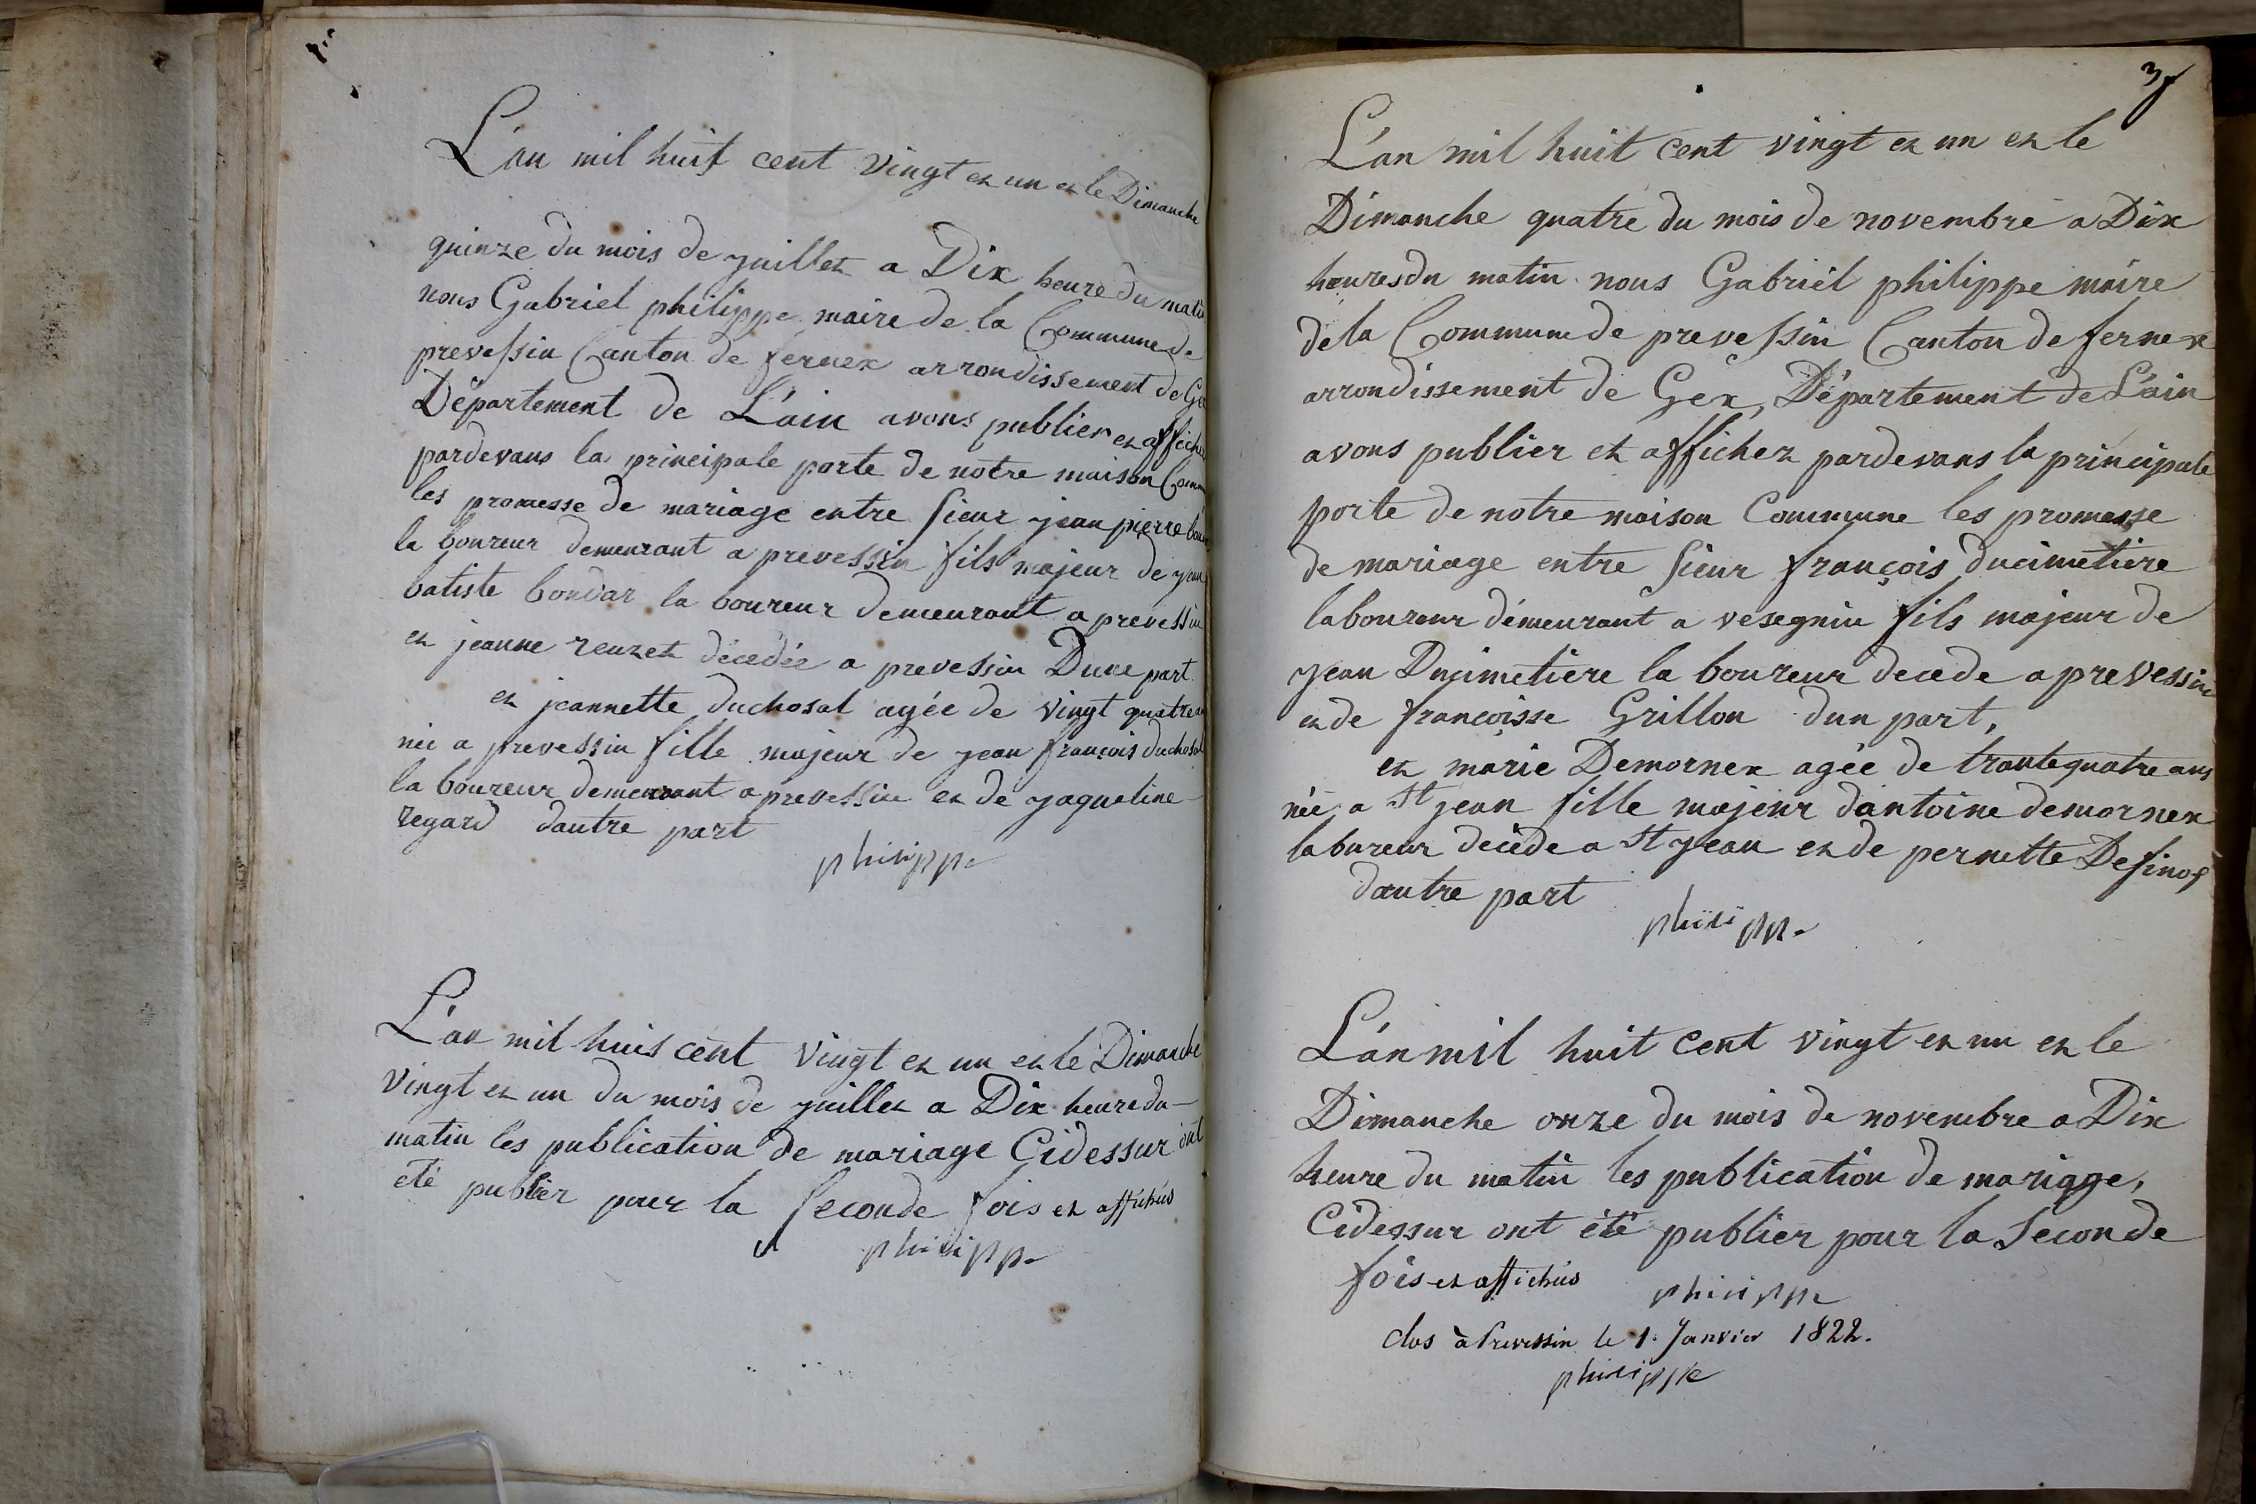 L'an mil huit cent vingt et un et le Dimanche
quinze du mois de juillet a Dix heure du matin
nous Gabriel philippe maire de la Commune de
prevessin Canton de fernex arrondissement de Gex
Département de L'ain avons publier et affichez
pardevans la principale porte de notre maison
les promesse de mariage entre sieur jean pierre
la boureur demeurant a prevessin fils majeur de jean
batiste bondar la boureur demeurant a prevessin
et jeanne décedée a prevessin Dune part
et jeannette duchosal agée de vingt quatre
née a prevessin fille majeur de jean françois duchosal
la boureur demeurant a prevessin et de jaqueline
regard dautre part
philippe
L'an mil huis cent vingt et un et le Dimanche
vingt et un du mois de juillet a Dix heure du
matin les publication de mariage Cidessur ont
été publier pour la seconde fois et affichés
philippe
3
L'an mil huit cent vingt et un et le
Dimanche quatre du mois de novembre a Dix
heures du matin nous Gabriel philippe maire
de la Commune de prevessin Canton de fernex
arrondissement de Gex, Département de L'ain
avons publier et affichez pardevans la principale
porte de notre maison Commune les promesse
de mariage entre sieur françois ducimetière
laboureur démeurant a vesegnin fils majeur de
jean Ducimetière la boureur decede a prevessin
et de françoisse Grillon dun part,
et marie Demornex agée de trante quatre ans
née a St jean fille majeur dantoine demornex
labureur decède a St jean et de pernette
dautre part
philippe
L'an mil huit cent vingt et un et le
Dimanche onze du mois de novembre a Dix
heure du matin les publication de mariage,
Cidessur ont été publier pour la Seconde
fois et affichés
philippe
clos à Prevessin le 1. Janvier 1822.
philippe